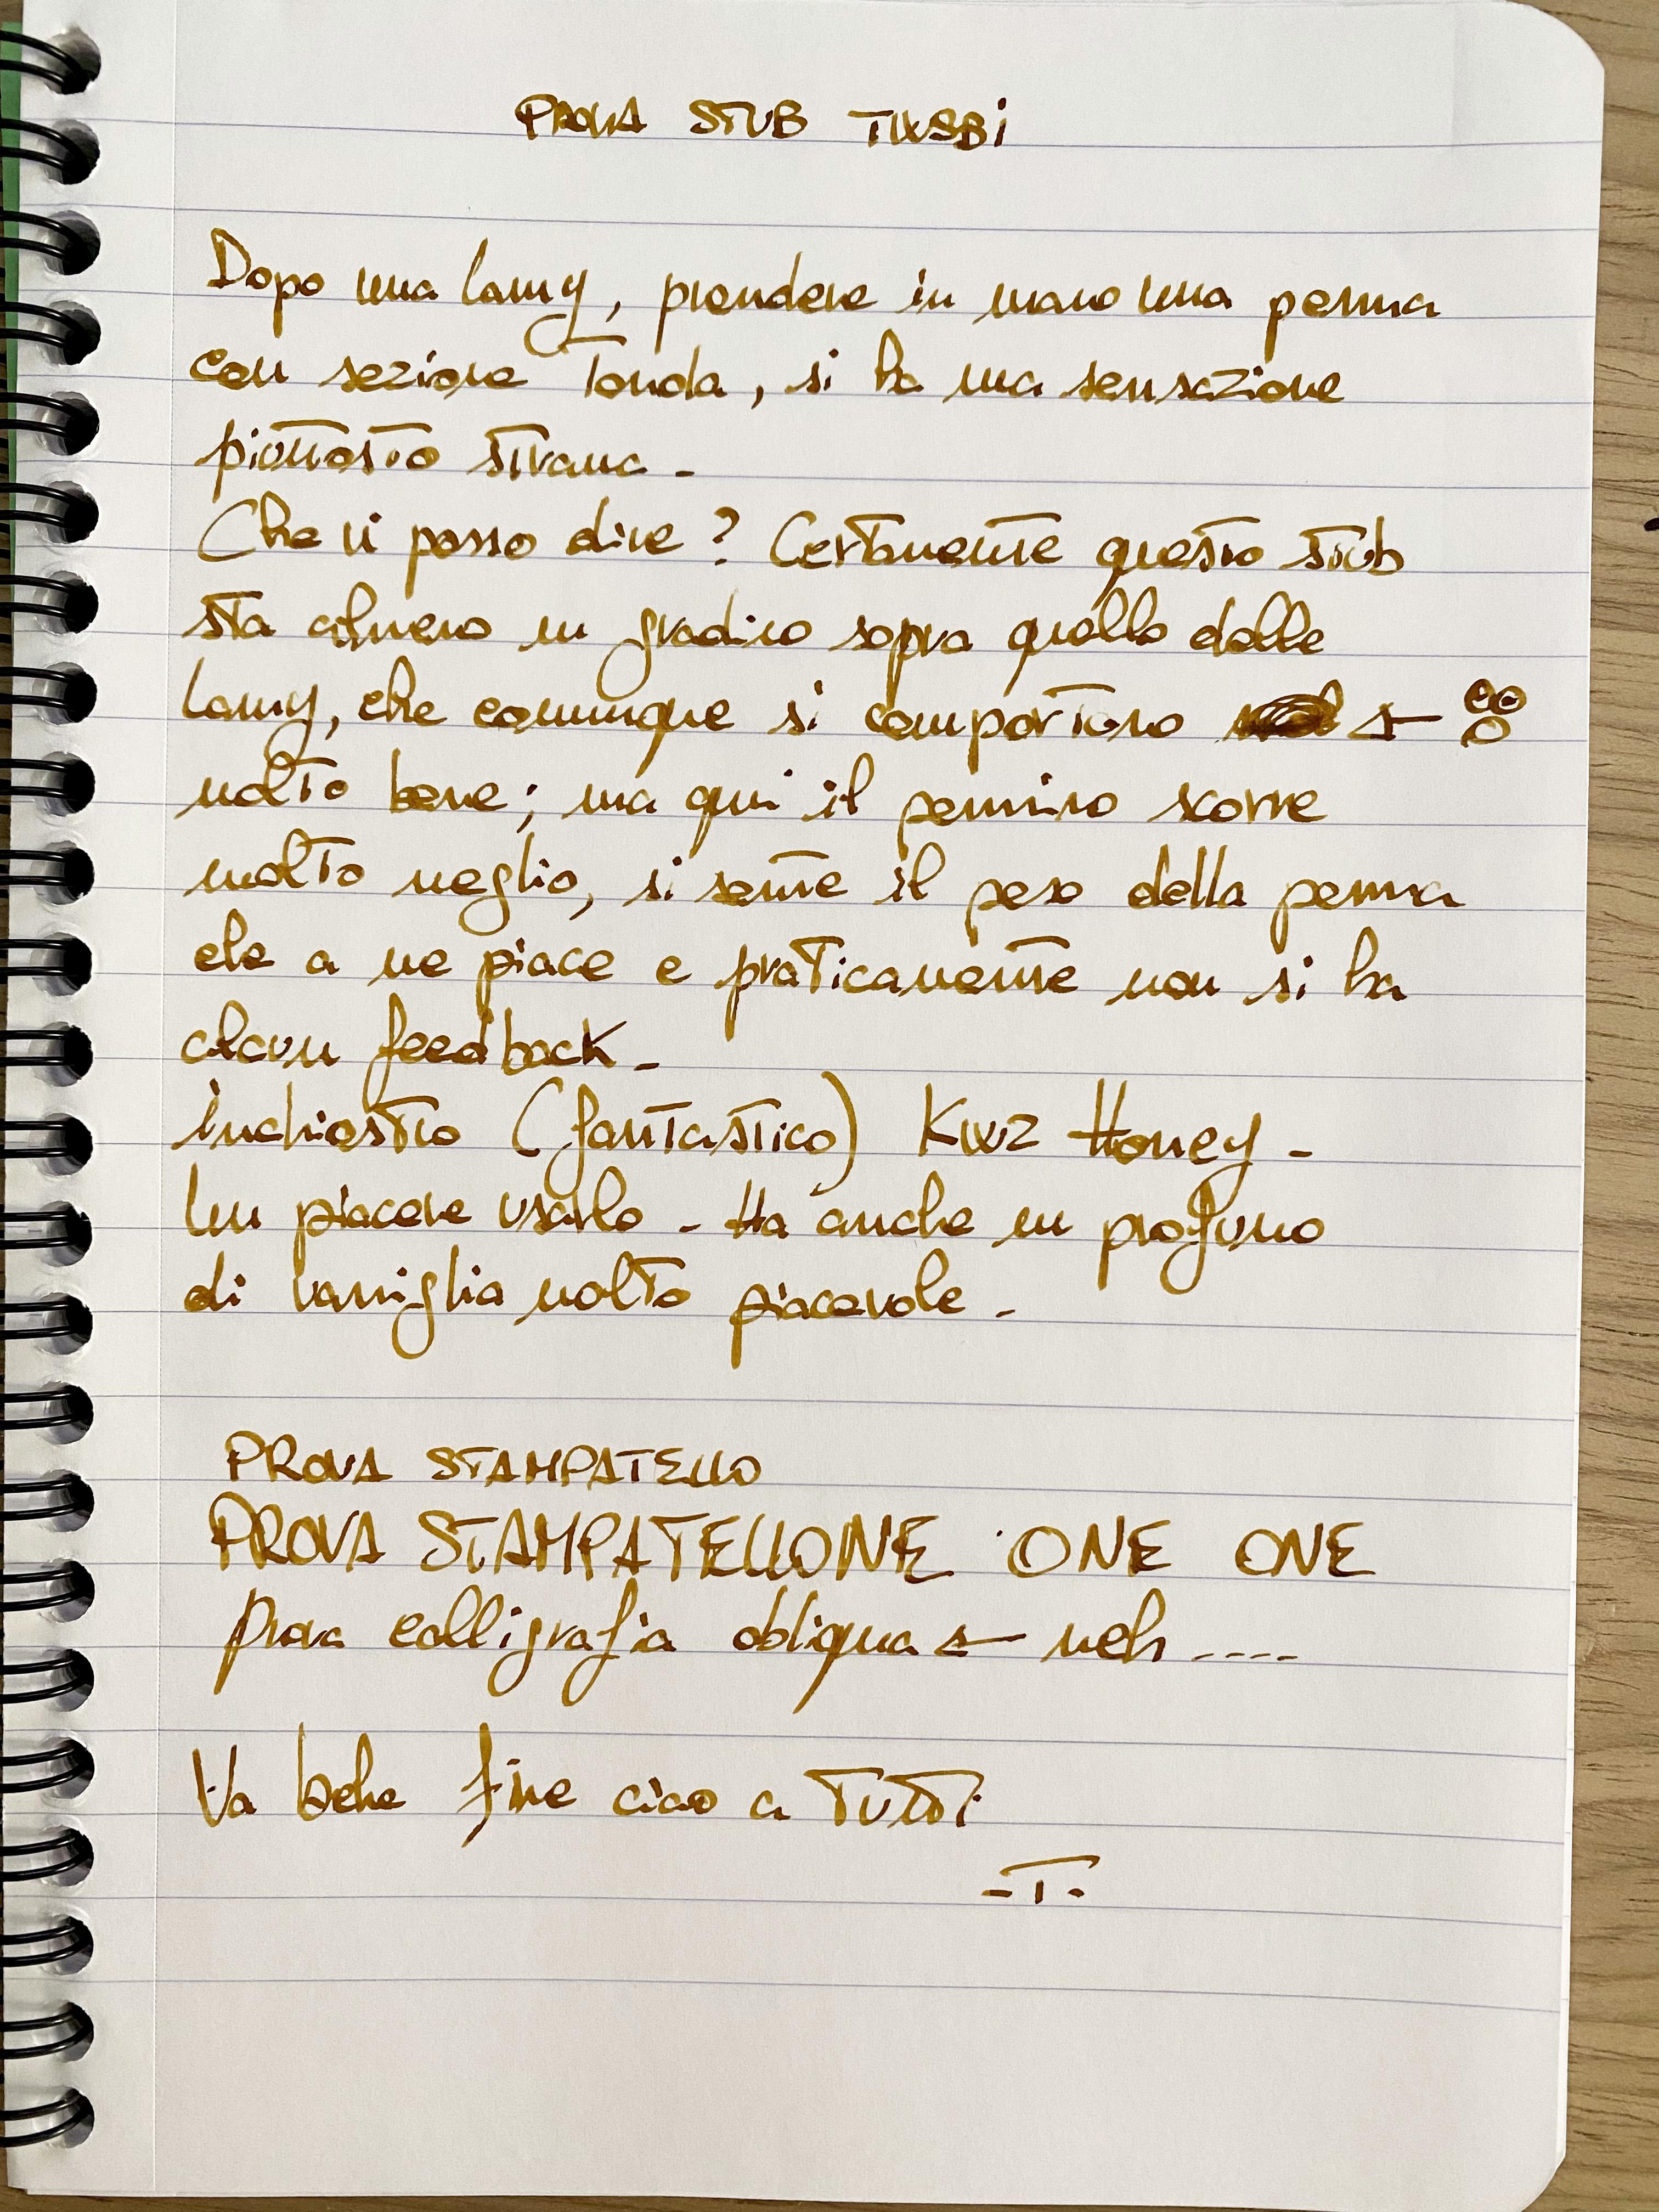 PROVA STUB TWSBi
Dopo una Lamy, prendere in mano una penna
con sezione Tonda, si ha una sensazione
piuttosto strana -
Che vi posso dire? Certamente questo stub
sta almeno un gradino sopra quello delle
Lamy, che comunque si comportano
molto bene; ma qui il pennino scorre
molto meglio, si sente il peso della penna
che a me piace e praticamente non si ha
alcun feedback -
inchiostro (fantastico) KWZ Honey -
Un piacere usarlo - Ha anche un profumo
di vaniglia molto piacevole -
PROVA STAMPATELLO
PROVA STAMPATELLONE ONE ONE
Prova calligrafia obliqua ← meh ....
Va bene fine ciao a Tutti
-T-